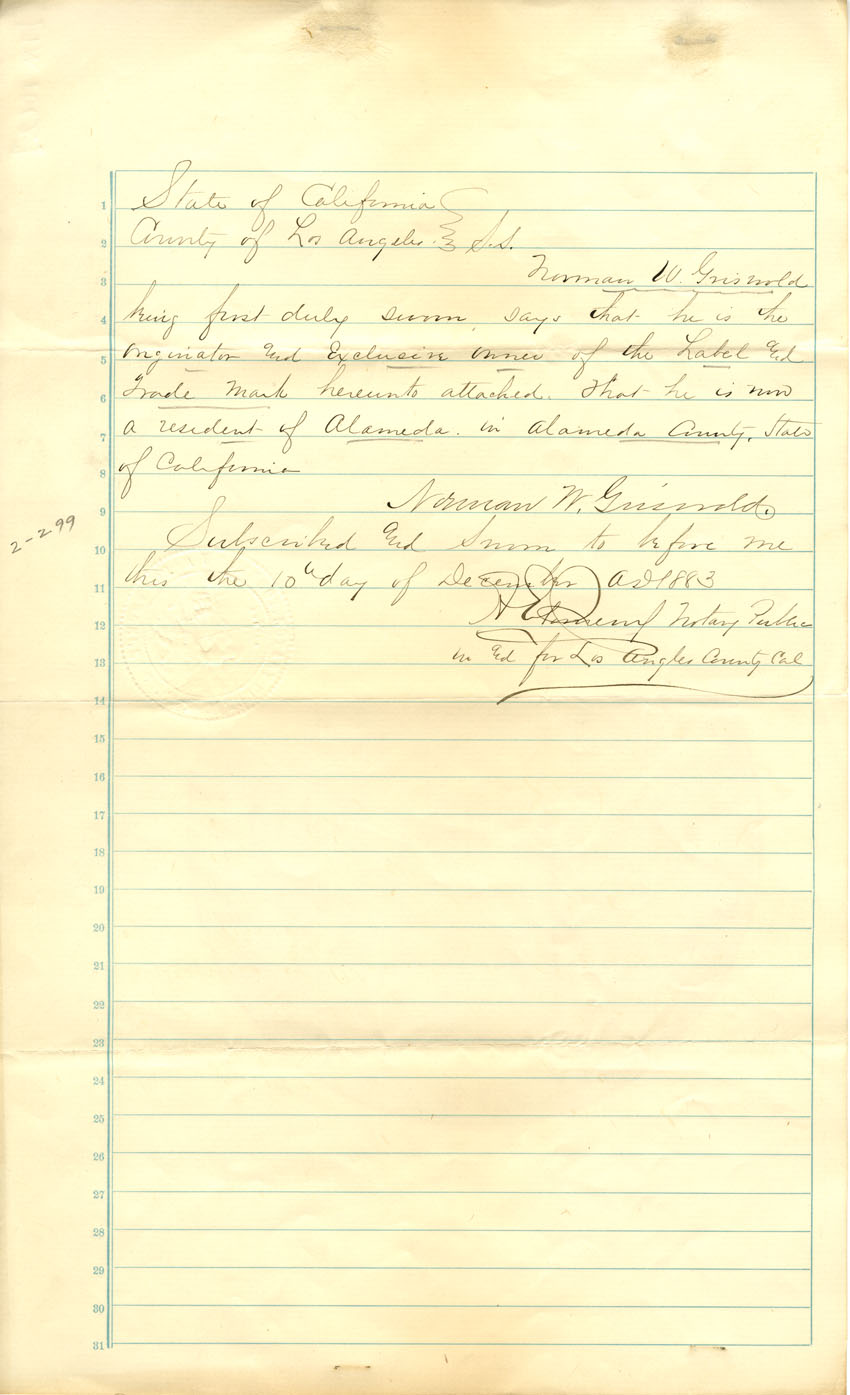 State of California
County of Los Angeles } S.S.
Norman W. Griswold
being first duly sworn, says that he is the
originator and Exclusive owner of the Label and
Trade Mark hereunto attached. That he is now
a resident of Alameda. in Alameda County, State
of California
Norman W. Griswold.
Subscribed and Sworn to before me
this the 10th day of December AD 1883
Notary Public
in and for Los Angles County Cal
2-299
1
2
3
4
5
6
7
8
9
10
11
12
13
14
15
16
17
18
19
20
21
22
23
24
25
26
27
28
29
30
31